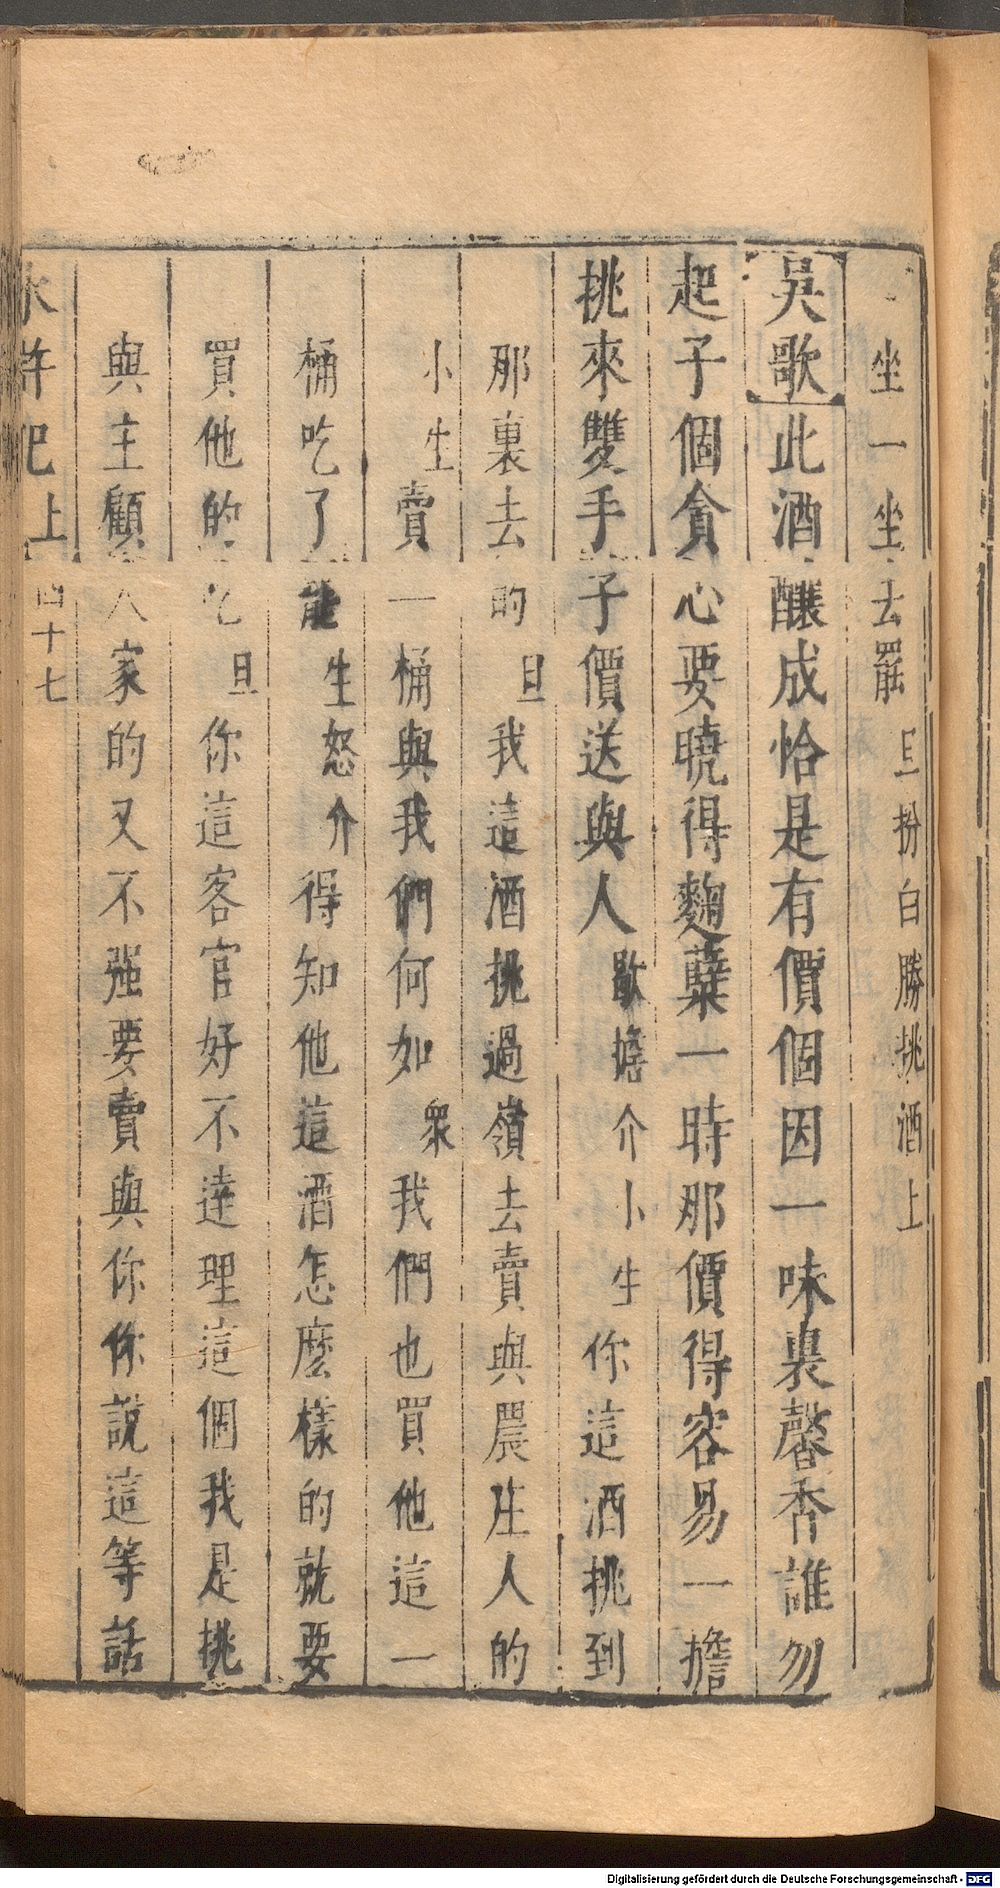 坐一坐去罷旦扮白勝挑酒上
吳歌此酒釀成恰是有價個因一味裏馨香誰勿
起子個貪心要曉得麴蘖一時那價得容易一擔
挑來雙手子價送與人歇擔介小生你這酒挑到
那裏去的旦我這酒挑過嶺去賣與農庄人的
小生賣一桶與我們何如衆我們也買他這一
桶吃了能生怒介得知他這酒怎麼樣的就要
買他的吃旦你這客官好不達理這個我是挑
與主顧人家的又不強要賣與你你說這等話
水滸記上 四十七
Digitalisierung gefördert durch die Deutsche Forschungsgemeinschaft - DFG